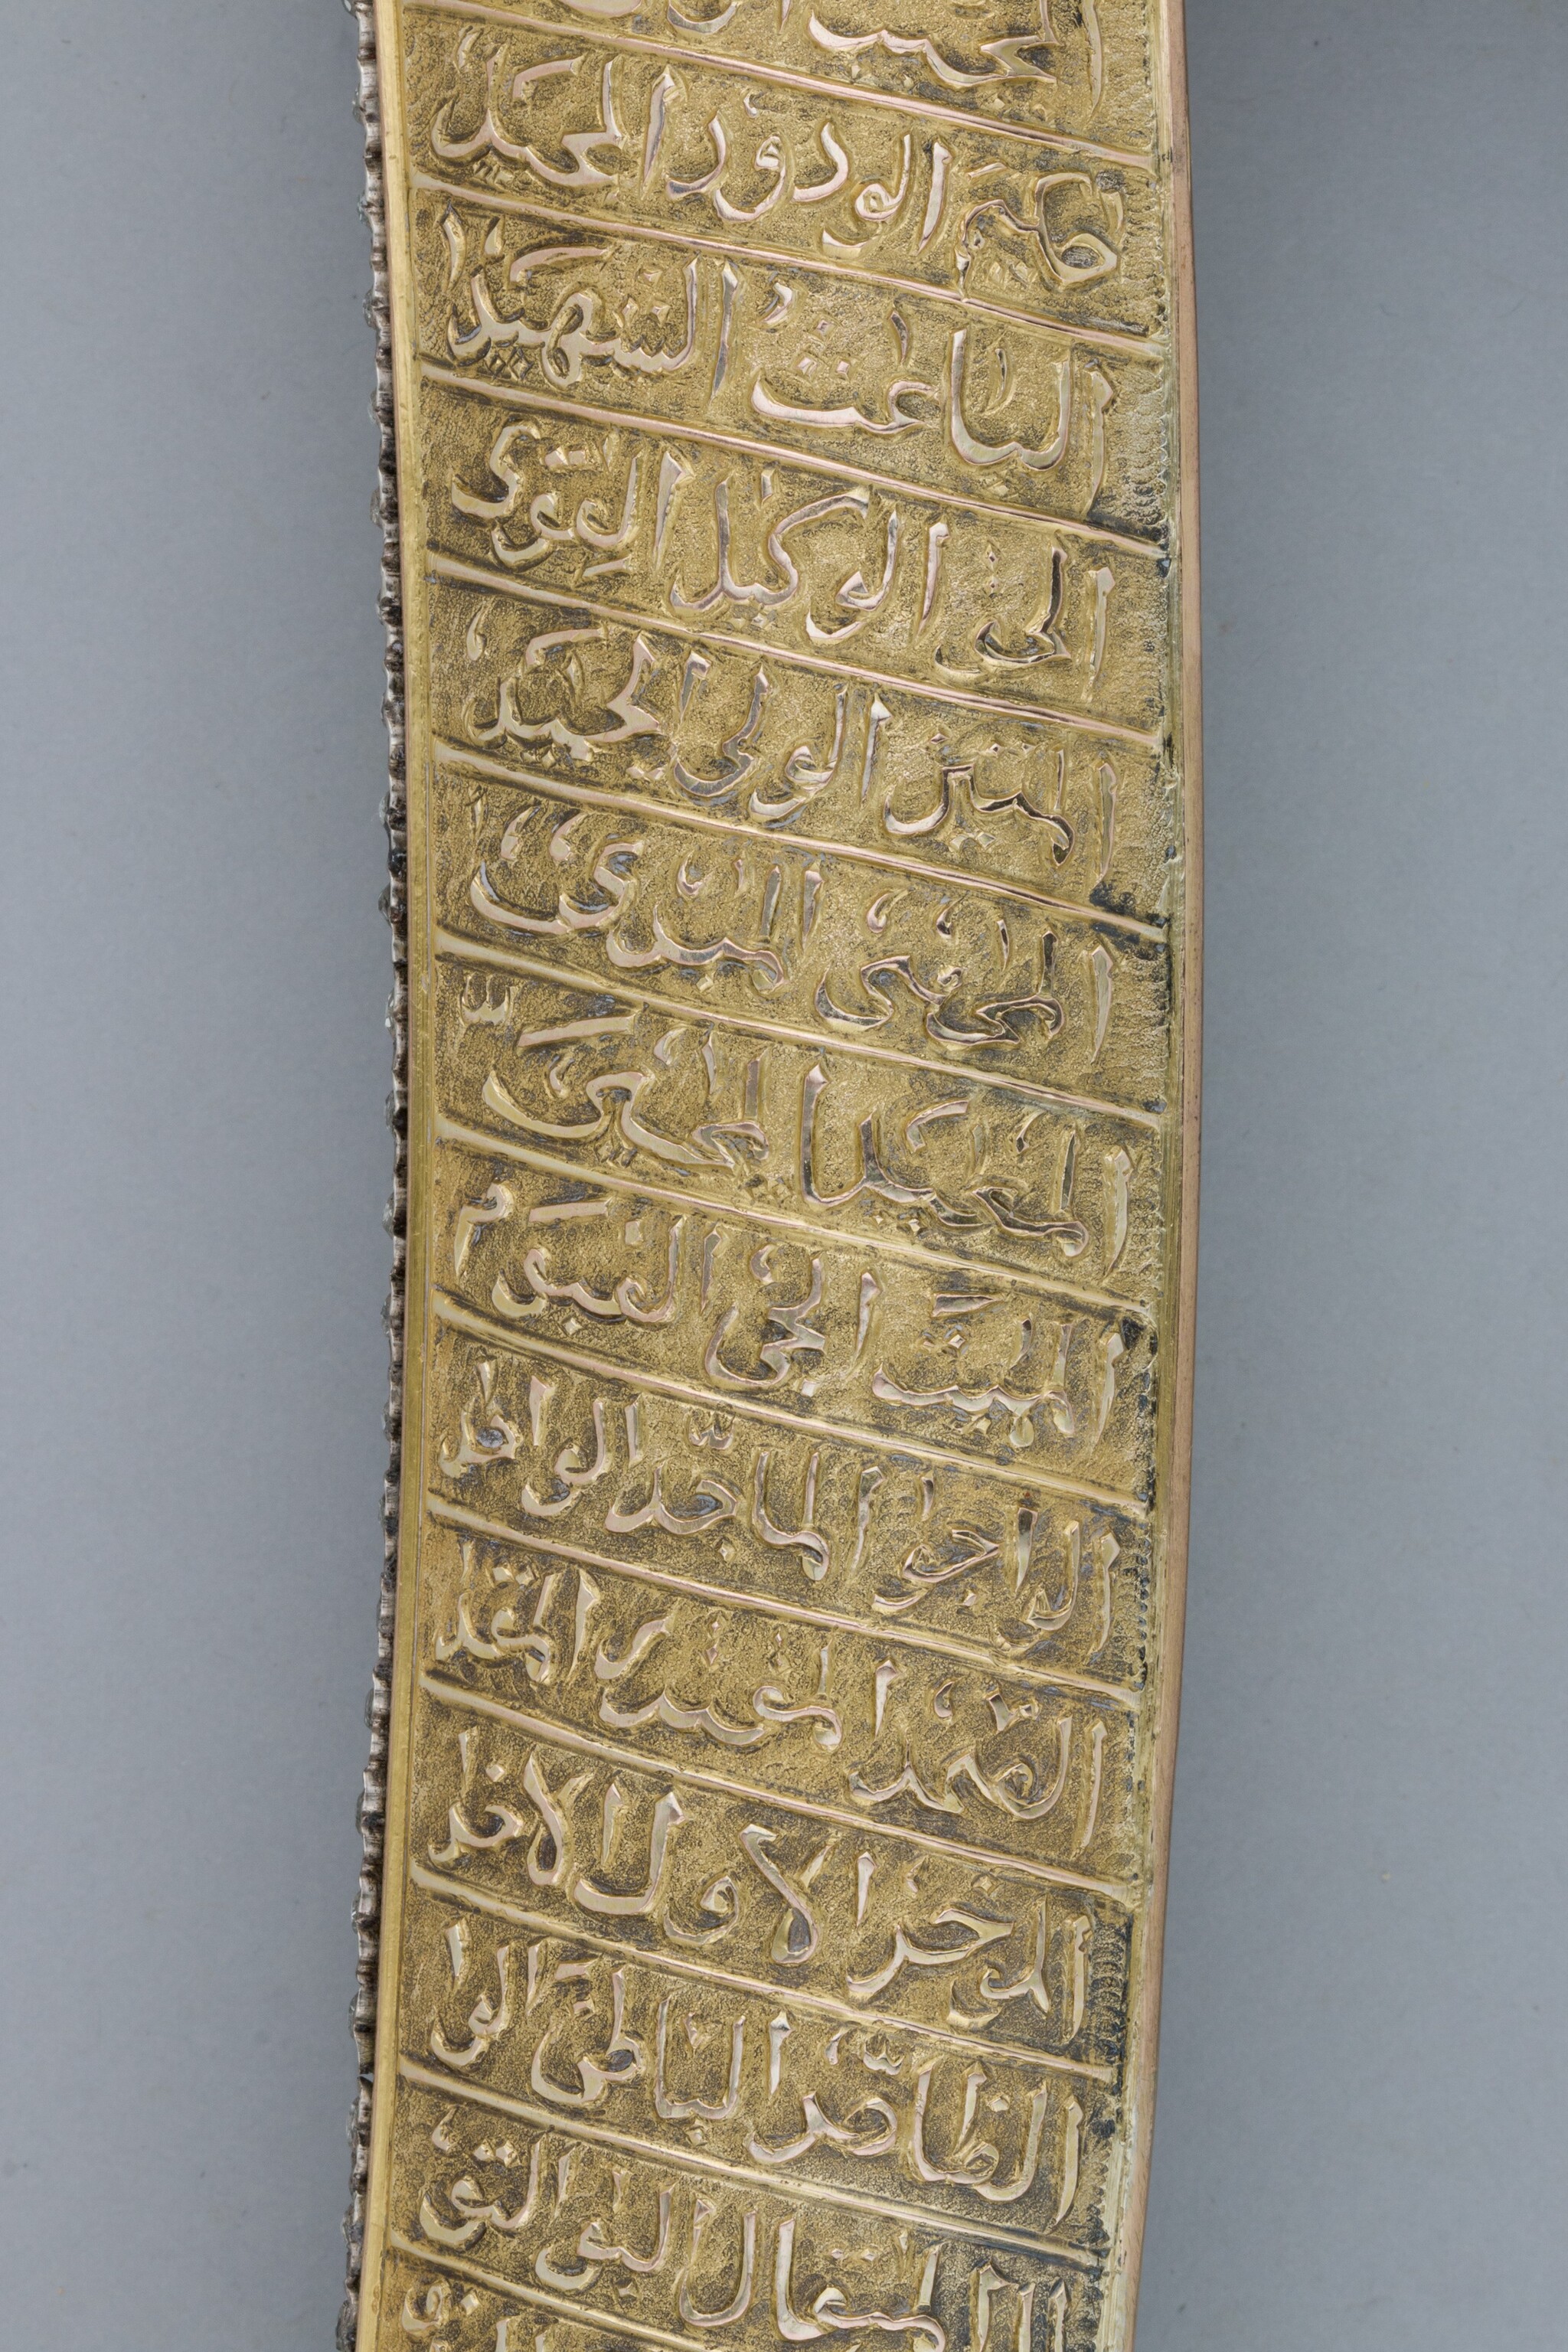 المجيب
كيم الودود المجيد
الباعث الشهيد ا
الحق الوكيل القوى
المتين الولى الحميد
المحصى المبدئ
المعيد المحيى
المميت الحى القيوم
الواجد الماجد الواحد
الصمد المقتدر المقد
الموخر الاول الاخر
الظاهر الباطن الوا
المتعال البر التو